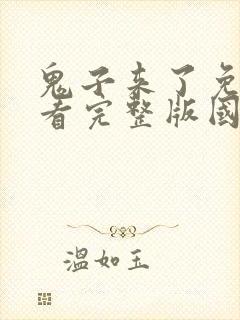 鬼子来了免
看完整版國
温如玉